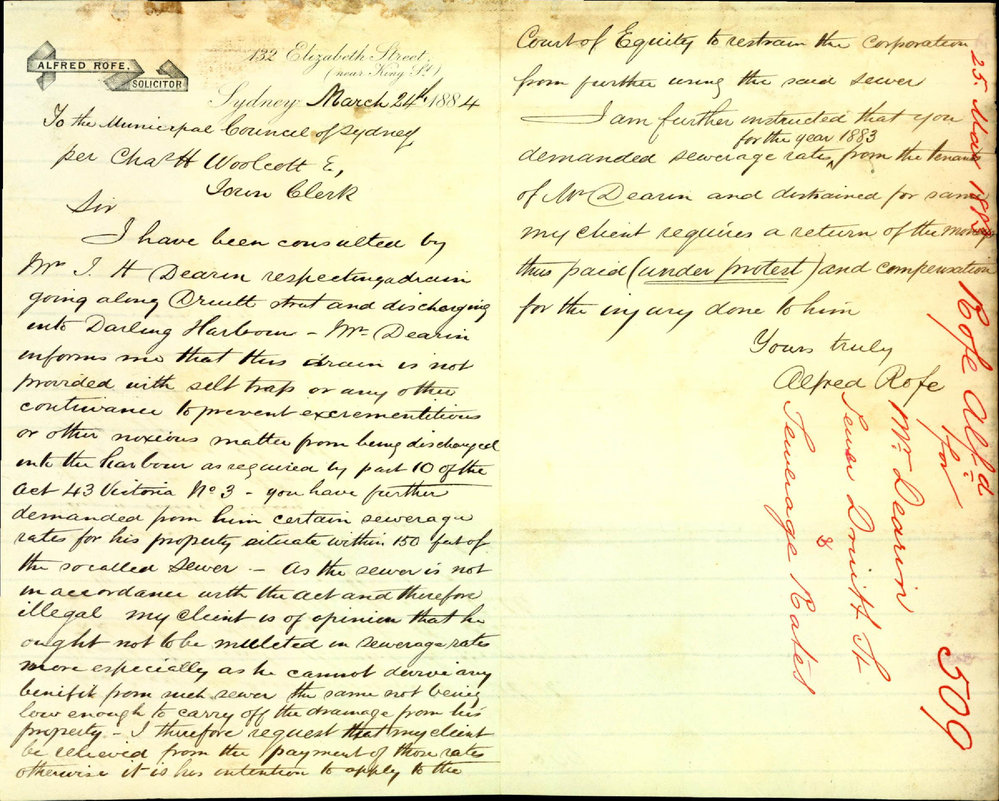 ALFRED ROFE.
SOLICITOR
132 Elizabeth Street,
(near King St)
Sydney March 24th 1884
To the Municipal Council of Sydney
per Chas H Woolcott E,
Town Clerk
Sir
I have been consulted by
Mr J. H Dearin respecting a drain
going along Druitt street and discharging
into Darling Harbour – Mr Dearin
informs me that this drain is not
provided with silt traps or any other
contrivance to prevent excrementitious
or other noxious matter from being discharged
into the harbour as required by part 10 of the
Act 43 Victoria No 3 – you have further
demanded from him certain sewerage
rates for his property situate within 150 feet of
the so called Sewer – As the sewer is not
in accordance with the act and therefore
illegal my client is of opinion that he
ought not to be mulcted in sewerage rates
more especially as he cannot derive any
benefit from such sewer the same not being
low enough to carry off the drainage from his
property – I therefore request that my client
be relieved from the payment of those rates
otherwise it is his intention to apply to the
Court of Equity to restrain the corporation
from further using the said sewer
I am further instructed that you
for the year 1883
demanded sewerage rates from the tenants
of Mr Dearin and distrained for same
my client requires a return of the money
thus paid (under protest) and compensation
for the injury done to him
Yours truly
Alfred Rofe
25. Mar
Rofe Alfd
for
Mr. Dearin
Sewer Druitt St
&
Sewerage Rates
509